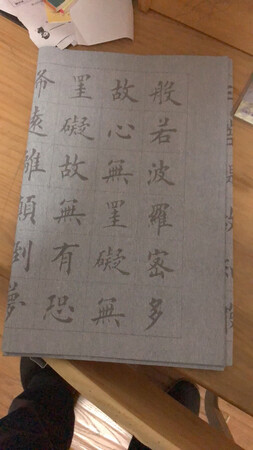 般若波羅密多
故心無罣礙無
罣礙故無有恐
怖遠離顛倒夢